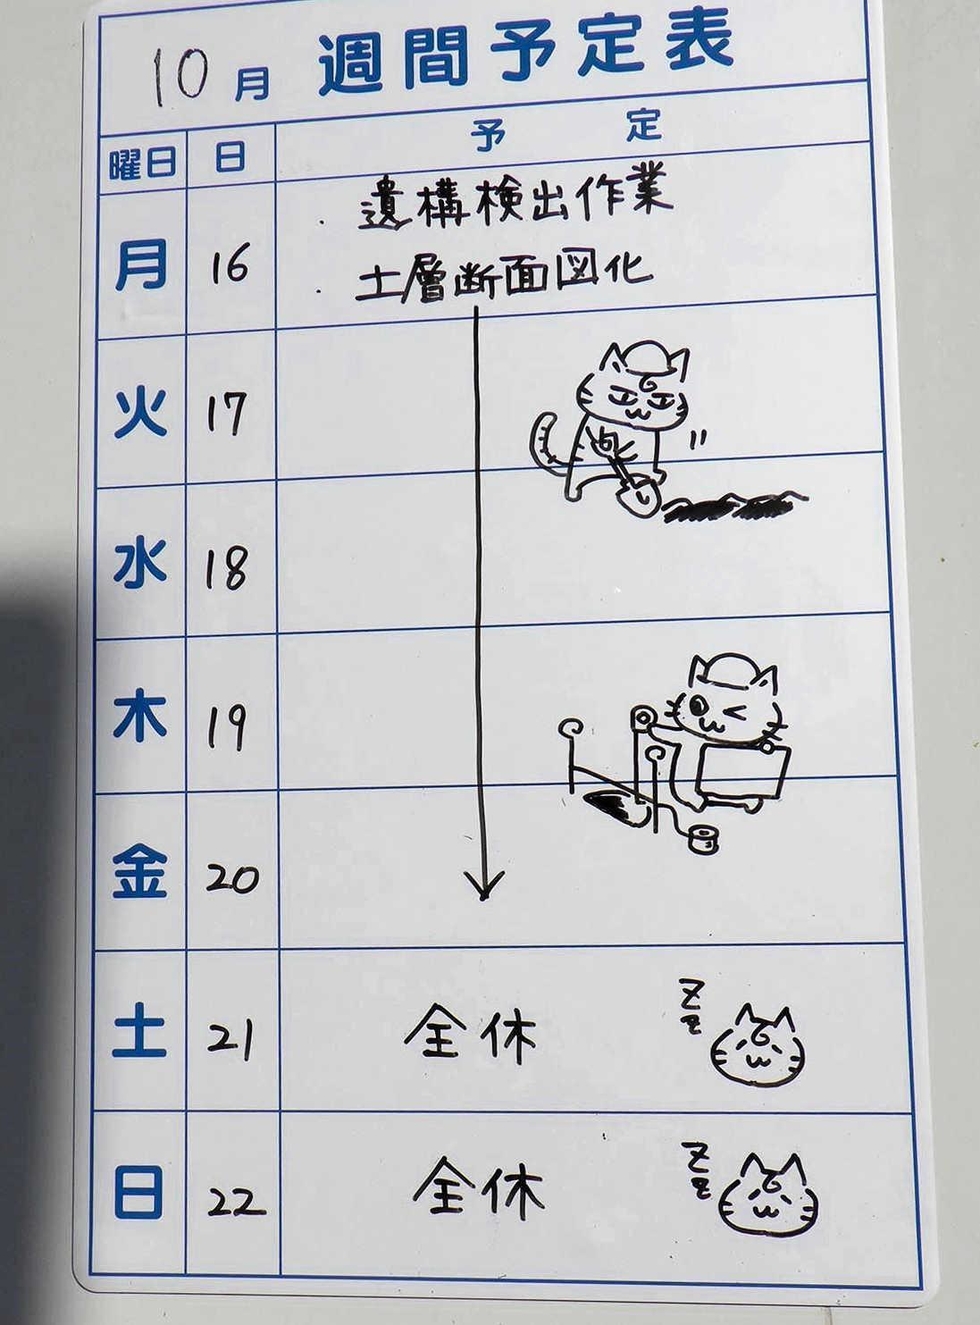 10月 週間予定表
曜日 日 予定
・遺構検出作業
月 16
・土層断面図化
火 17
水 18
木 19
金 20
土 21 全休 zz
日 22 全休 zz